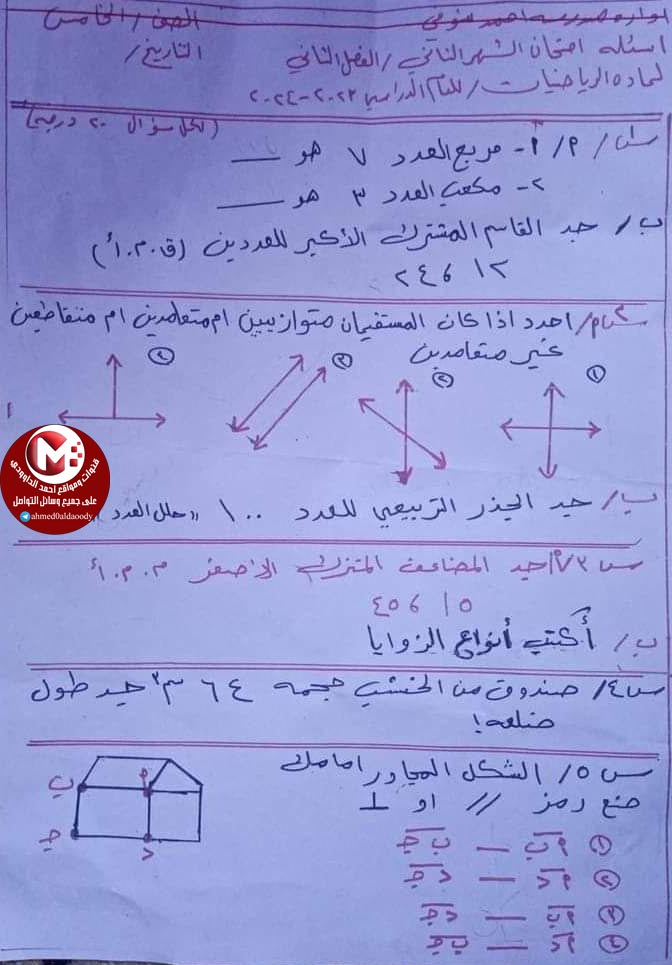 ادارة مدرسة احمد شوقي
الصف / الخامس
اسئلة امتحان الشهر الثاني / الفصل الثاني
التاريخ /
لمادة الرياضيات / للعام الدراسي ٢٠٢٣-٢٠٢٤
(لكل سؤال ٢٠ درجة)
س١/ ٢/ ١- مربع العدد ٧ هو ___
٢- مكعب العدد ٣ هو ___
ب/ جد القاسم المشترك الأكبر للعددين (ق.م.أ)
١٢ ، ٢٤
س٢/ احدد اذا كان المستقيمان متوازيين ام متعامدين ام متقاطعين
غير متعامدين
١
٢
٣
٤
ب/ جد الجذر التربيعي للعدد ١٠٠ ((حلل العدد
س٣/ ٢/ جد المضاعف المشترك الاصغر م.م.أ
١٥ ، ٤٥
ب/ أكتب أنواع الزوايا
س٤/ صندوق من الخشب حجمه ٦٤ سم٣ جد طول
ضلعه!
س٥/ الشكل المجاور امامك
ضع رمز // او ⊥
ب
٢
ج
د
١ ٢ب — ب ج
٢ ٢د — د ج
٣ ٢ب — د ج
٣ ٢د — ب ج
قنوات ومواقع احمد الداوودي
M
على جميع وسائل التواصل
ahmed0aldaoody